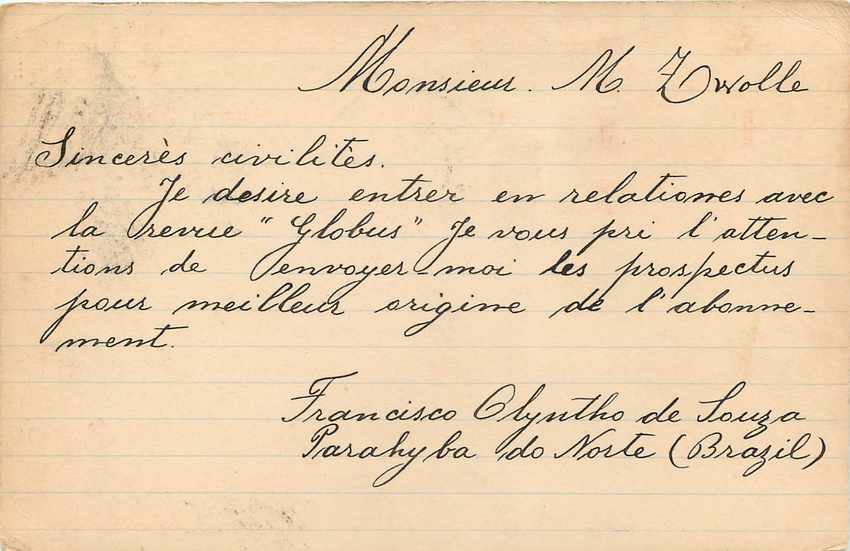 Monsieur. M. Zwolle
Sincerès civilitès.
Je desire entrer en relationes avec
la revue "Globus" Je vous pri l'atten-
tions de envoyer-moi les prospectus
pour meilleur origine de l'abonne-
ment.
Francisco Olyntho de Souza
Parahyba do Norte (Brazil)